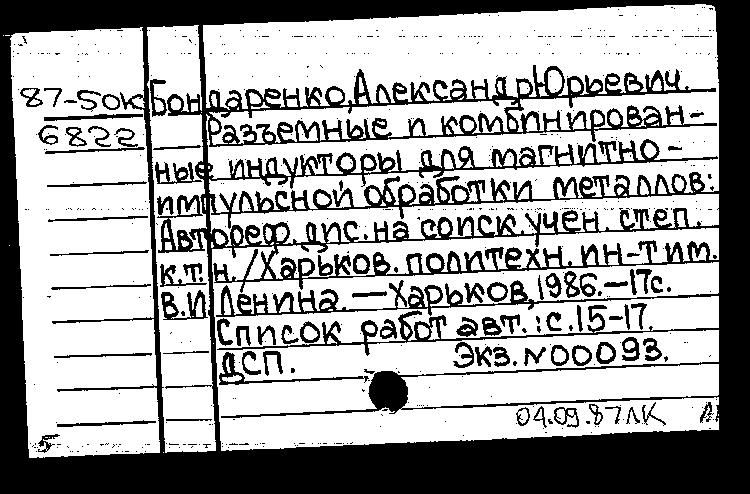 87-50к Бондаренко, Александр Юрьевич.
6822 Разъемные и комбинирован-
ные индукторы для магнитно-
импульсной обработки металлов:
Автореф. дис. на соиск. учен. степ.
к.т.н. /Харьков. политехн. ин-т им.
В.И. Ленина. — Харьков, 1986. — 17с.
Список работ авт.: с. 15-17.
ДСП. Экз. N 00093.
04.09.87 ЛК
5